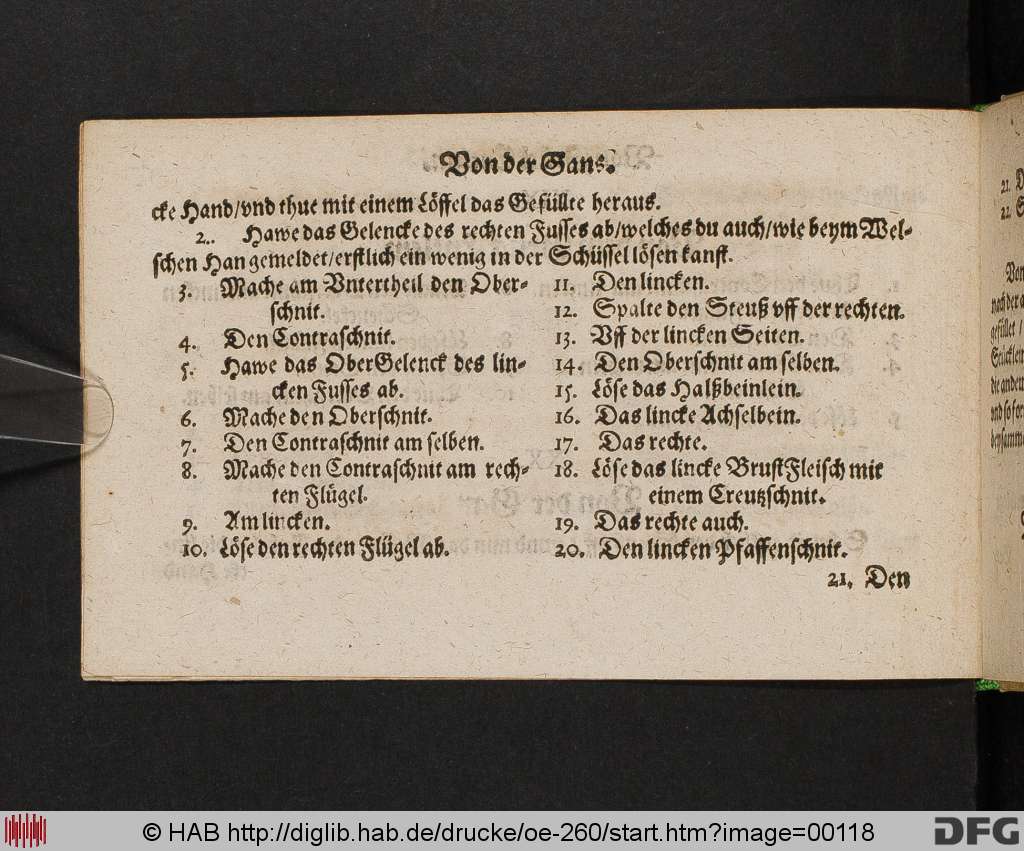 Von der Gans.
cke Hand/vnd thue mit einem Löffel das Gefüllte heraus.
2. Hawe das Gelencke des rechten Fusses ab/welches du auch/wie beym Wel-
schen Han gemeldet/erstlich ein wenig in der Schüssel lösen kanst.
3. Mache am Vntertheil den Ober-
schnit.
4. Den Contraschnit.
5. Hawe das OberGelenck des lin-
cken Fusses ab.
6. Mache den Oberschnit.
7. Den Contraschnit am selben.
8. Mache den Contraschnit am rech-
ten Flügel.
9. Am lincken.
10. Löse den rechten Flügel ab.
11. Den lincken.
12. Spalte den Steuß vff der rechten.
13. Vff der lincken Seiten.
14. Den Oberschnit am selben.
15. Löse das Halßbeinlein.
16. Das lincke Achselbein.
17. Das rechte.
18. Löse das lincke BrustFleisch mit
einem Creutzschnit.
19. Das rechte auch.
20. Den lincken Pfaffenschnit.
21. Den
© HAB http://diglib.hab.de/drucke/oe-260/start.htm?image=00118
DFG